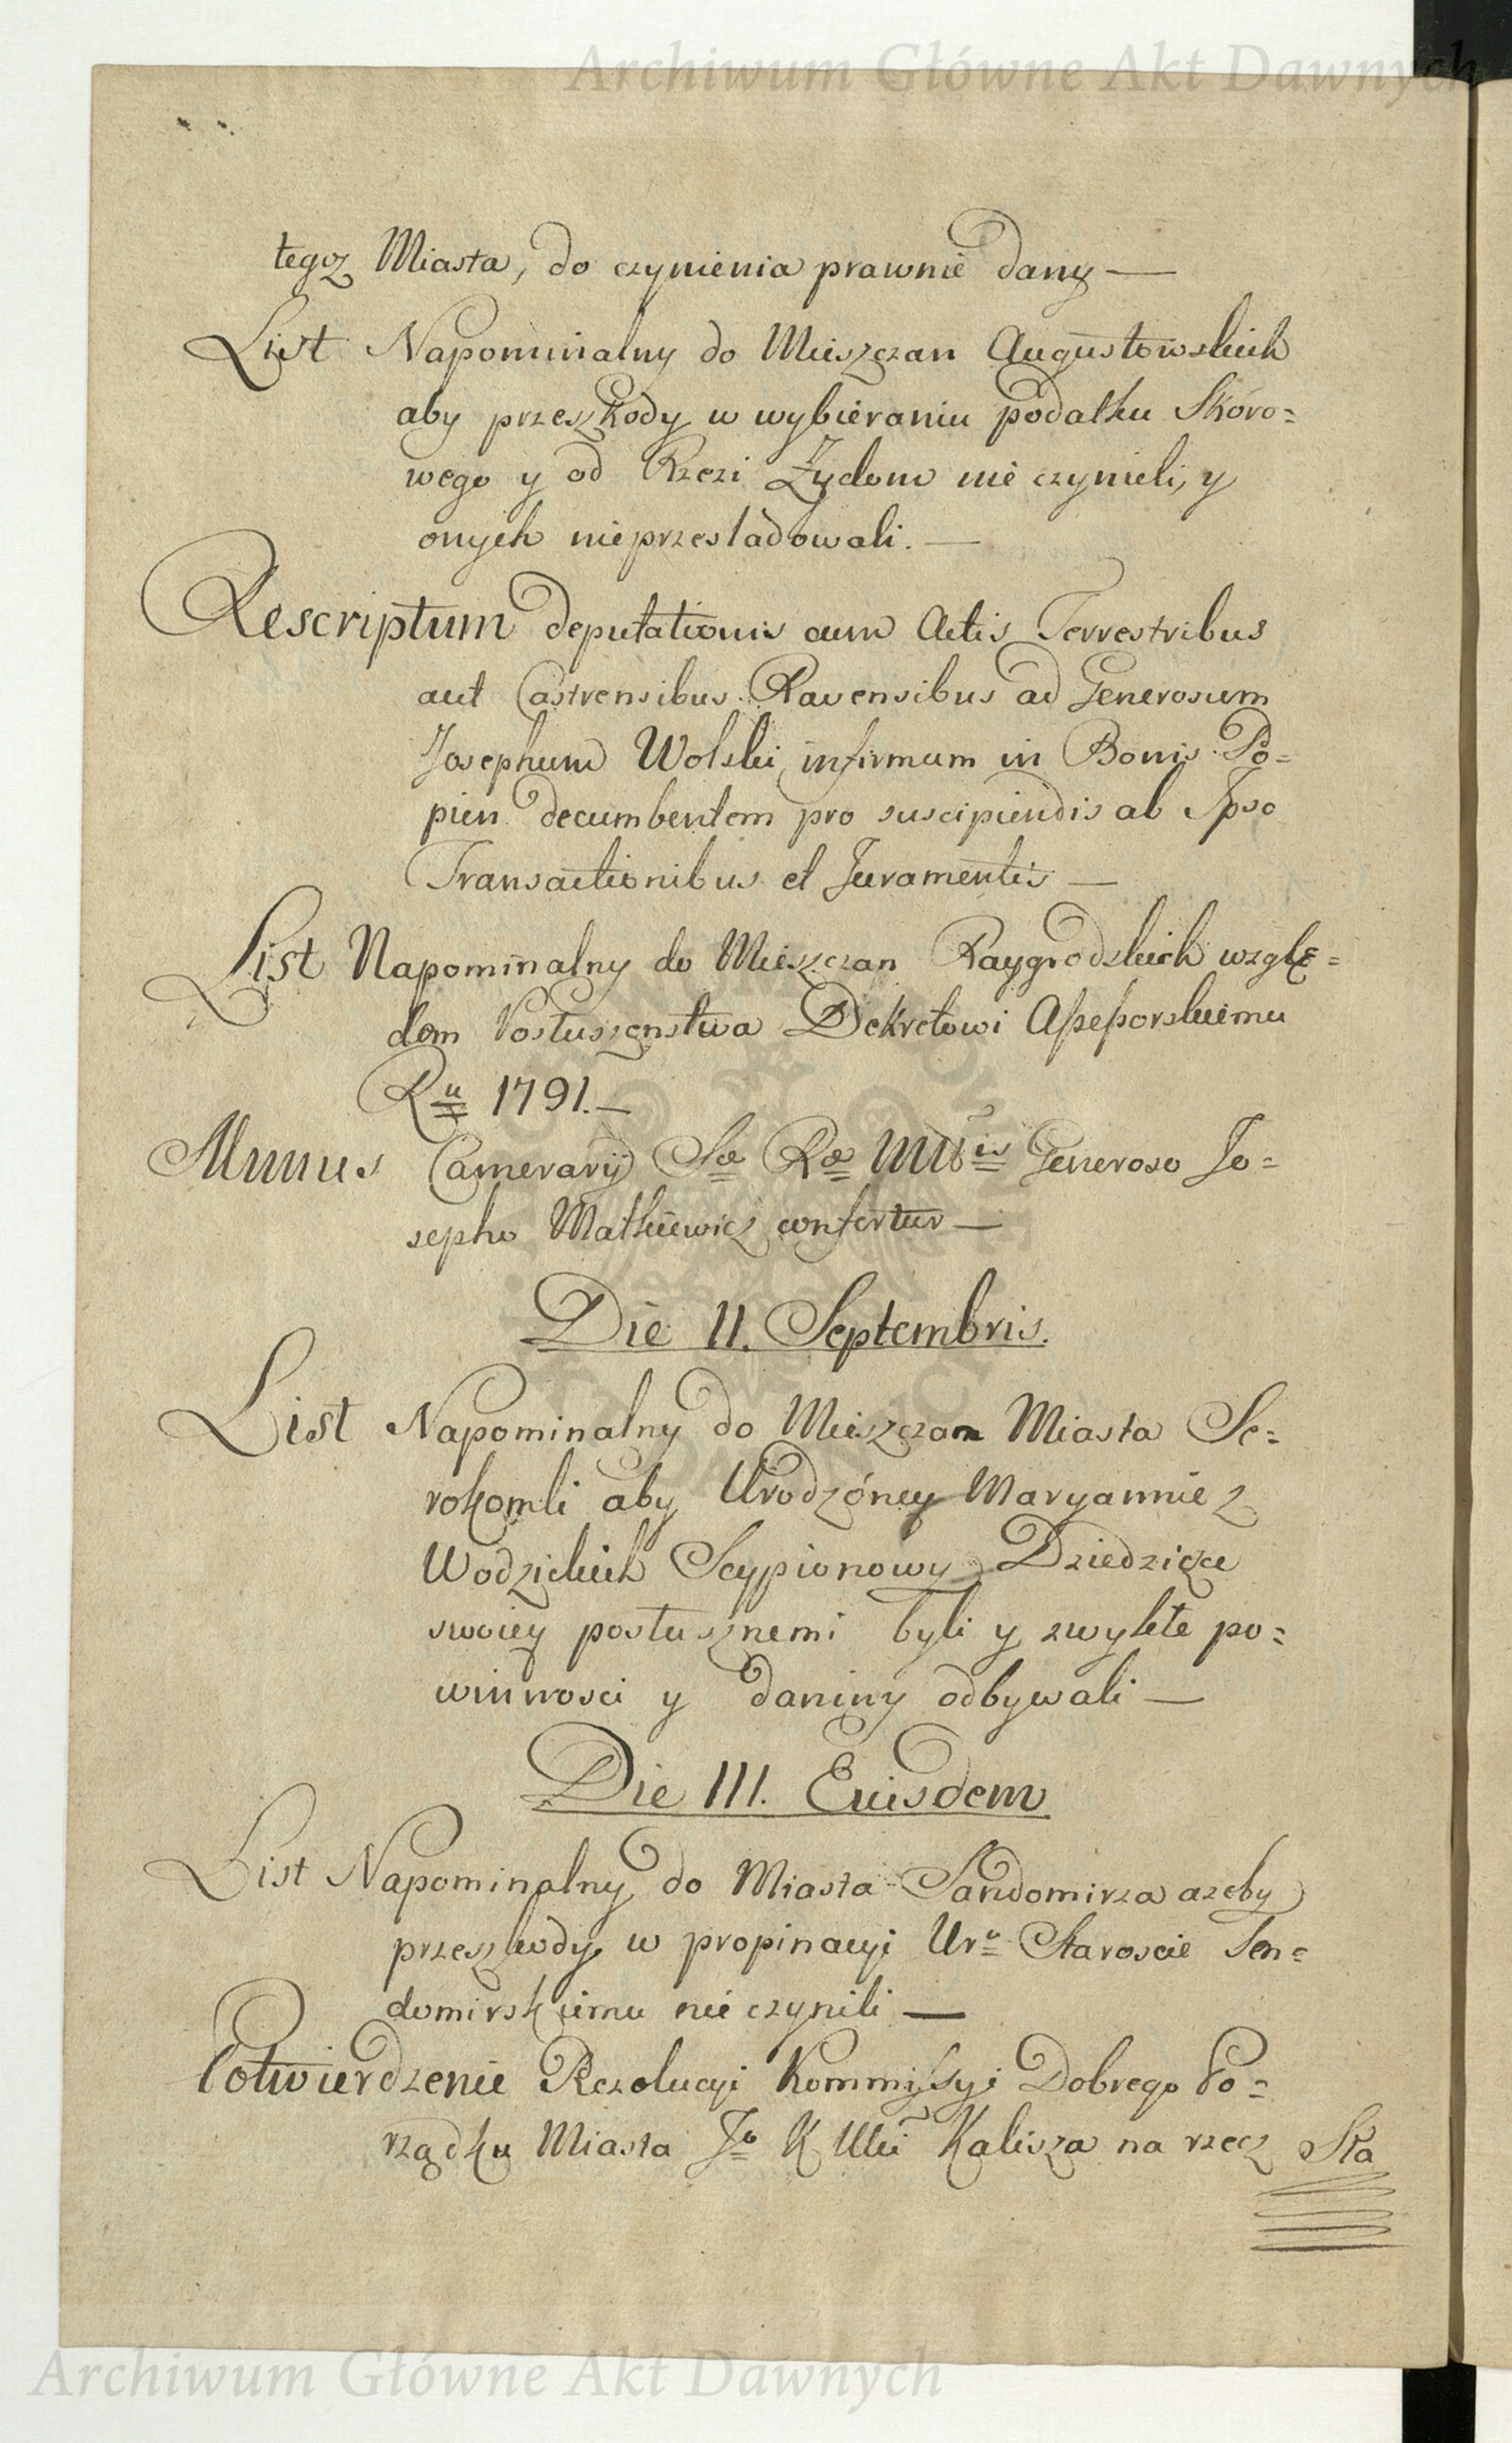 Archiwum Główne Akt Dawnych
tegoz Miasta, do czynienia prawnie dany —
List Napominalny do Mieszczan Augustowskich
aby przeszkody w wybieraniu podatku Skóro=
wego y od Rzezi Żydom nie czynieli, y
onych nieprzesladowali. —
Rescriptum deputationis cum Actis Terrestribus
aut Castrensibus Ravensibus ad Generosum
Josephum Wolski infirmum in Bonis Po=
pien decumbentem pro suscipiendis ab Ipso
Transactionibus et Juramentis —
List Napominalny do Mieszczan Raygrodzkich wzglę=
dem Posłuszenstwa Dekretowi Assessorskiemu
Ru 1791. —
Munus Camerarij Sæ Ræ Mttis Generoso Jo=
sepho Matkiewicz confertur —
Die II. Septembris.
List Napominalny do Mieszczan Miasta Se=
rokomli aby Urodzóney Maryannie z
Wodzickich Scypionowy Dziedzicze
swoiey posłusznemi byli y zwykłe po=
winnosci y daniny odbywali —
Die III. Euisdem
List Napominalny do Miasta Sandomirza azeby
przeszkody w propinacyi Uru Staroscie Sen=
domirskiemu nie czynili —
Potwierdzenie Rezolucyi Kommissyi Dobrego Po=
rządku Miasta Jo K Mci Kalisza na rzecz Sta
Archiwum Główne Akt Dawnych